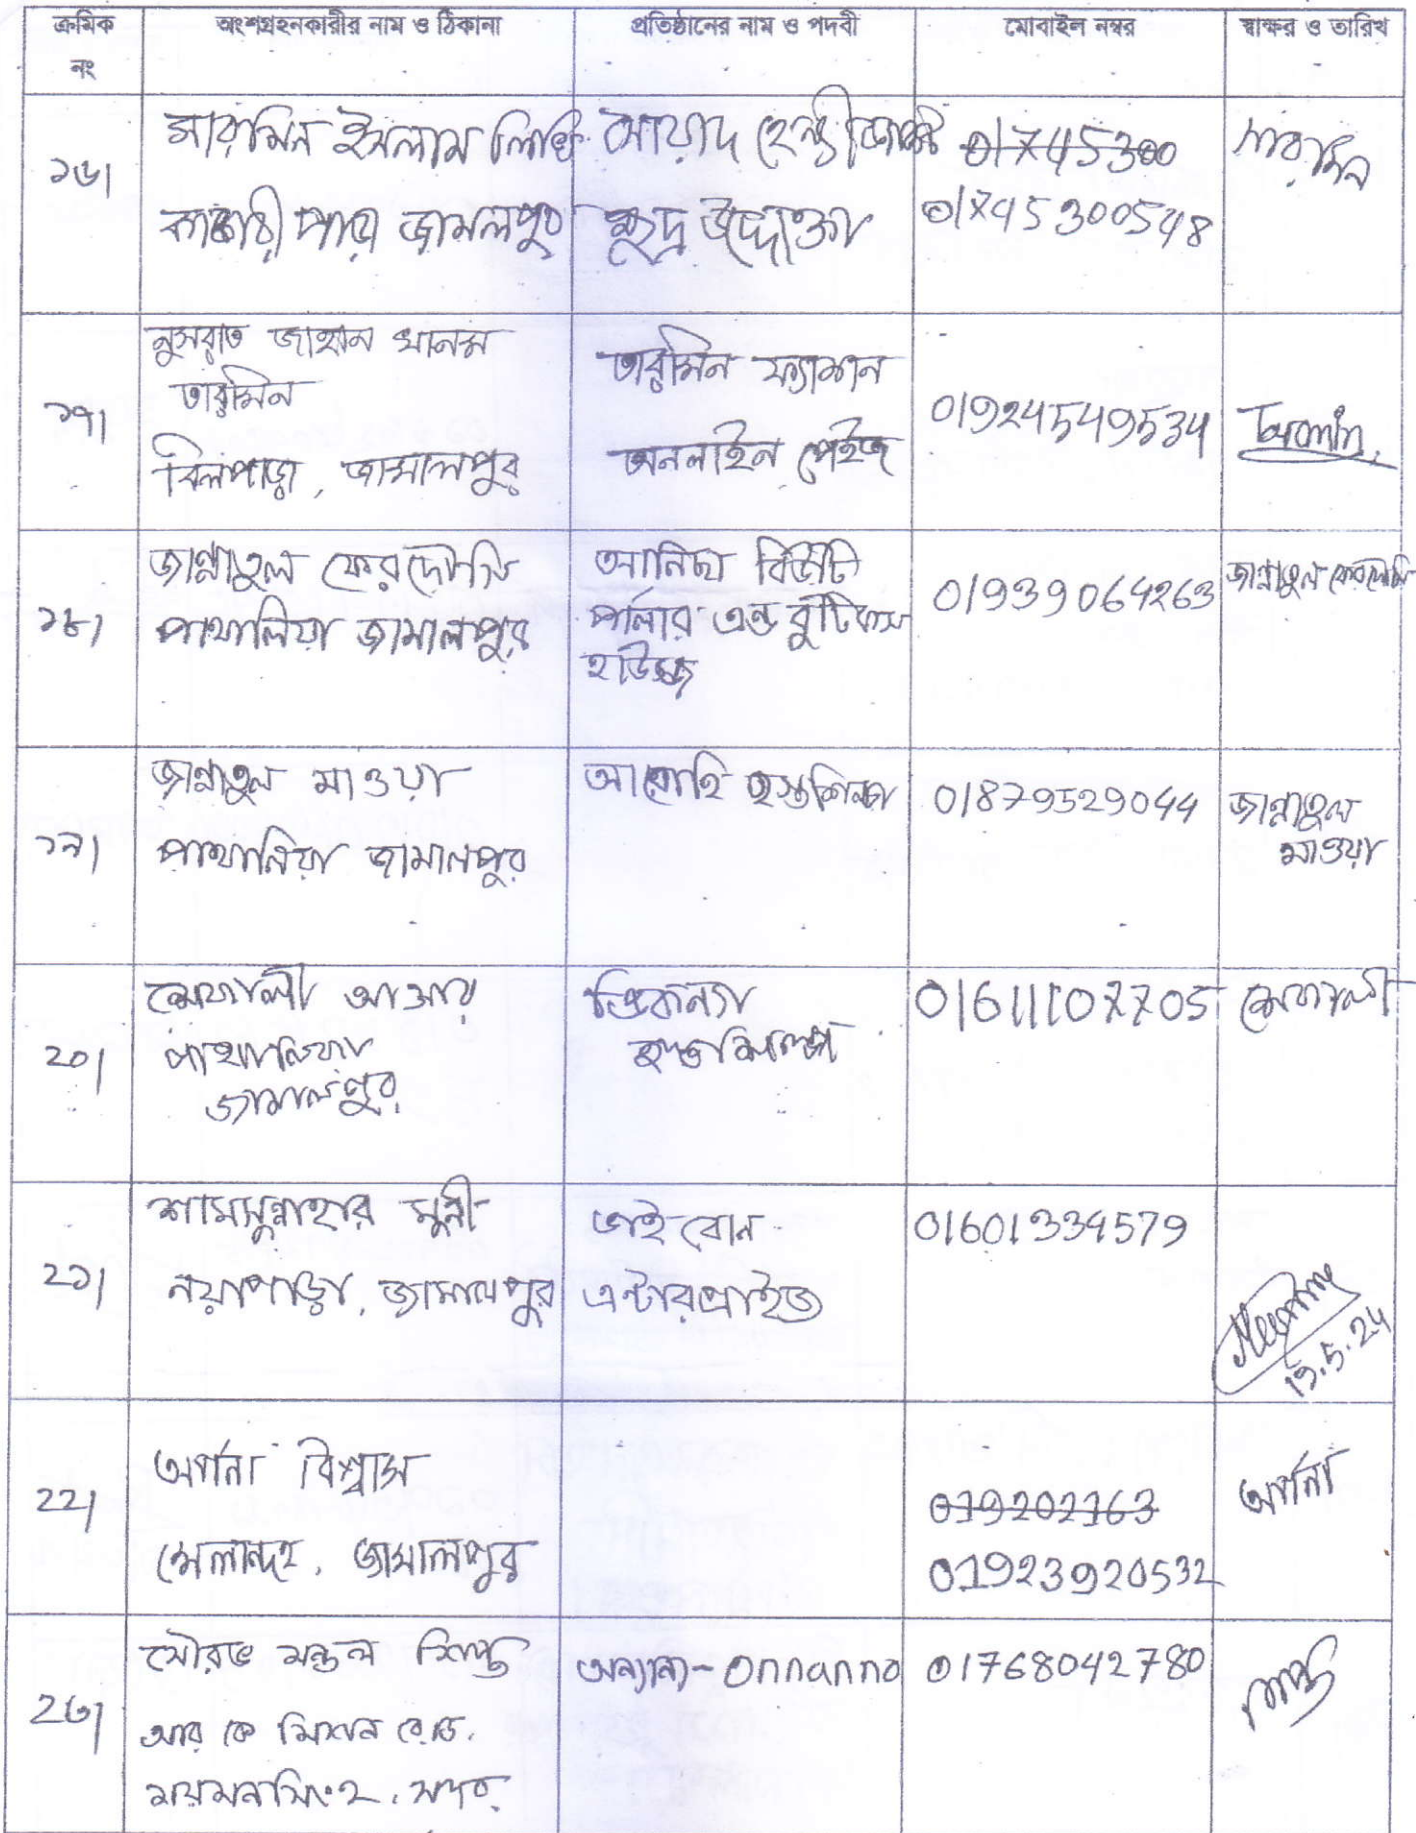 ক্রমিক নং
অংশগ্রহনকারীর নাম ও ঠিকানা
প্রতিষ্ঠানের নাম ও পদবী
মোবাইল নম্বর
স্বাক্ষর ও তারিখ
১৬।
সারমিন ইসলাম লিপি
পাড়া জামালপুর
সায়াদ
ক্ষুদ্র উদ্দোক্তা
01745300
01745300548
সারমিন
১৭।
নুসরাত জাহান খানম
তারমিন
বিলপাড়া, জামালপুর
তারমিন ফ্যাশান
অনলাইন পেইজ
01924549534
Tarmin.
১৮।
জান্নাতুল ফেরদৌসি
পাথালিয়া জামালপুর
আনিছা বিউটি
পার্লার এন্ড বুটিকস
হাউজ
01939064263
জান্নাতুল ফেরদৌসি
১৯।
জান্নাতুল মাওয়া
পাথালিয়া জামালপুর
আরোহি হস্তশিল্প
01879529044
জান্নাতুল
মাওয়া
২০।
শেফালী আক্তার
পাথালিয়া
জামালপুর
হস্ত শিল্প
01611107705
শেফালী
২১।
শামসুন্নাহার মুন্নী
নয়াপাড়া, জামালপুর
ভাই বোন
এন্টারপ্রাইজ
01601334579
15.5.24
22।
অর্পনা বিশ্বাস
মেলান্দহ, জামালপুর
019202163
01923920532
অর্পনা
2৩।
সৌরভ মন্ডল শিপ্ত
আর কে মিশন রোড,
ময়মনসিংহ, সদর,
অন্যান্য- onnanno
01768042780